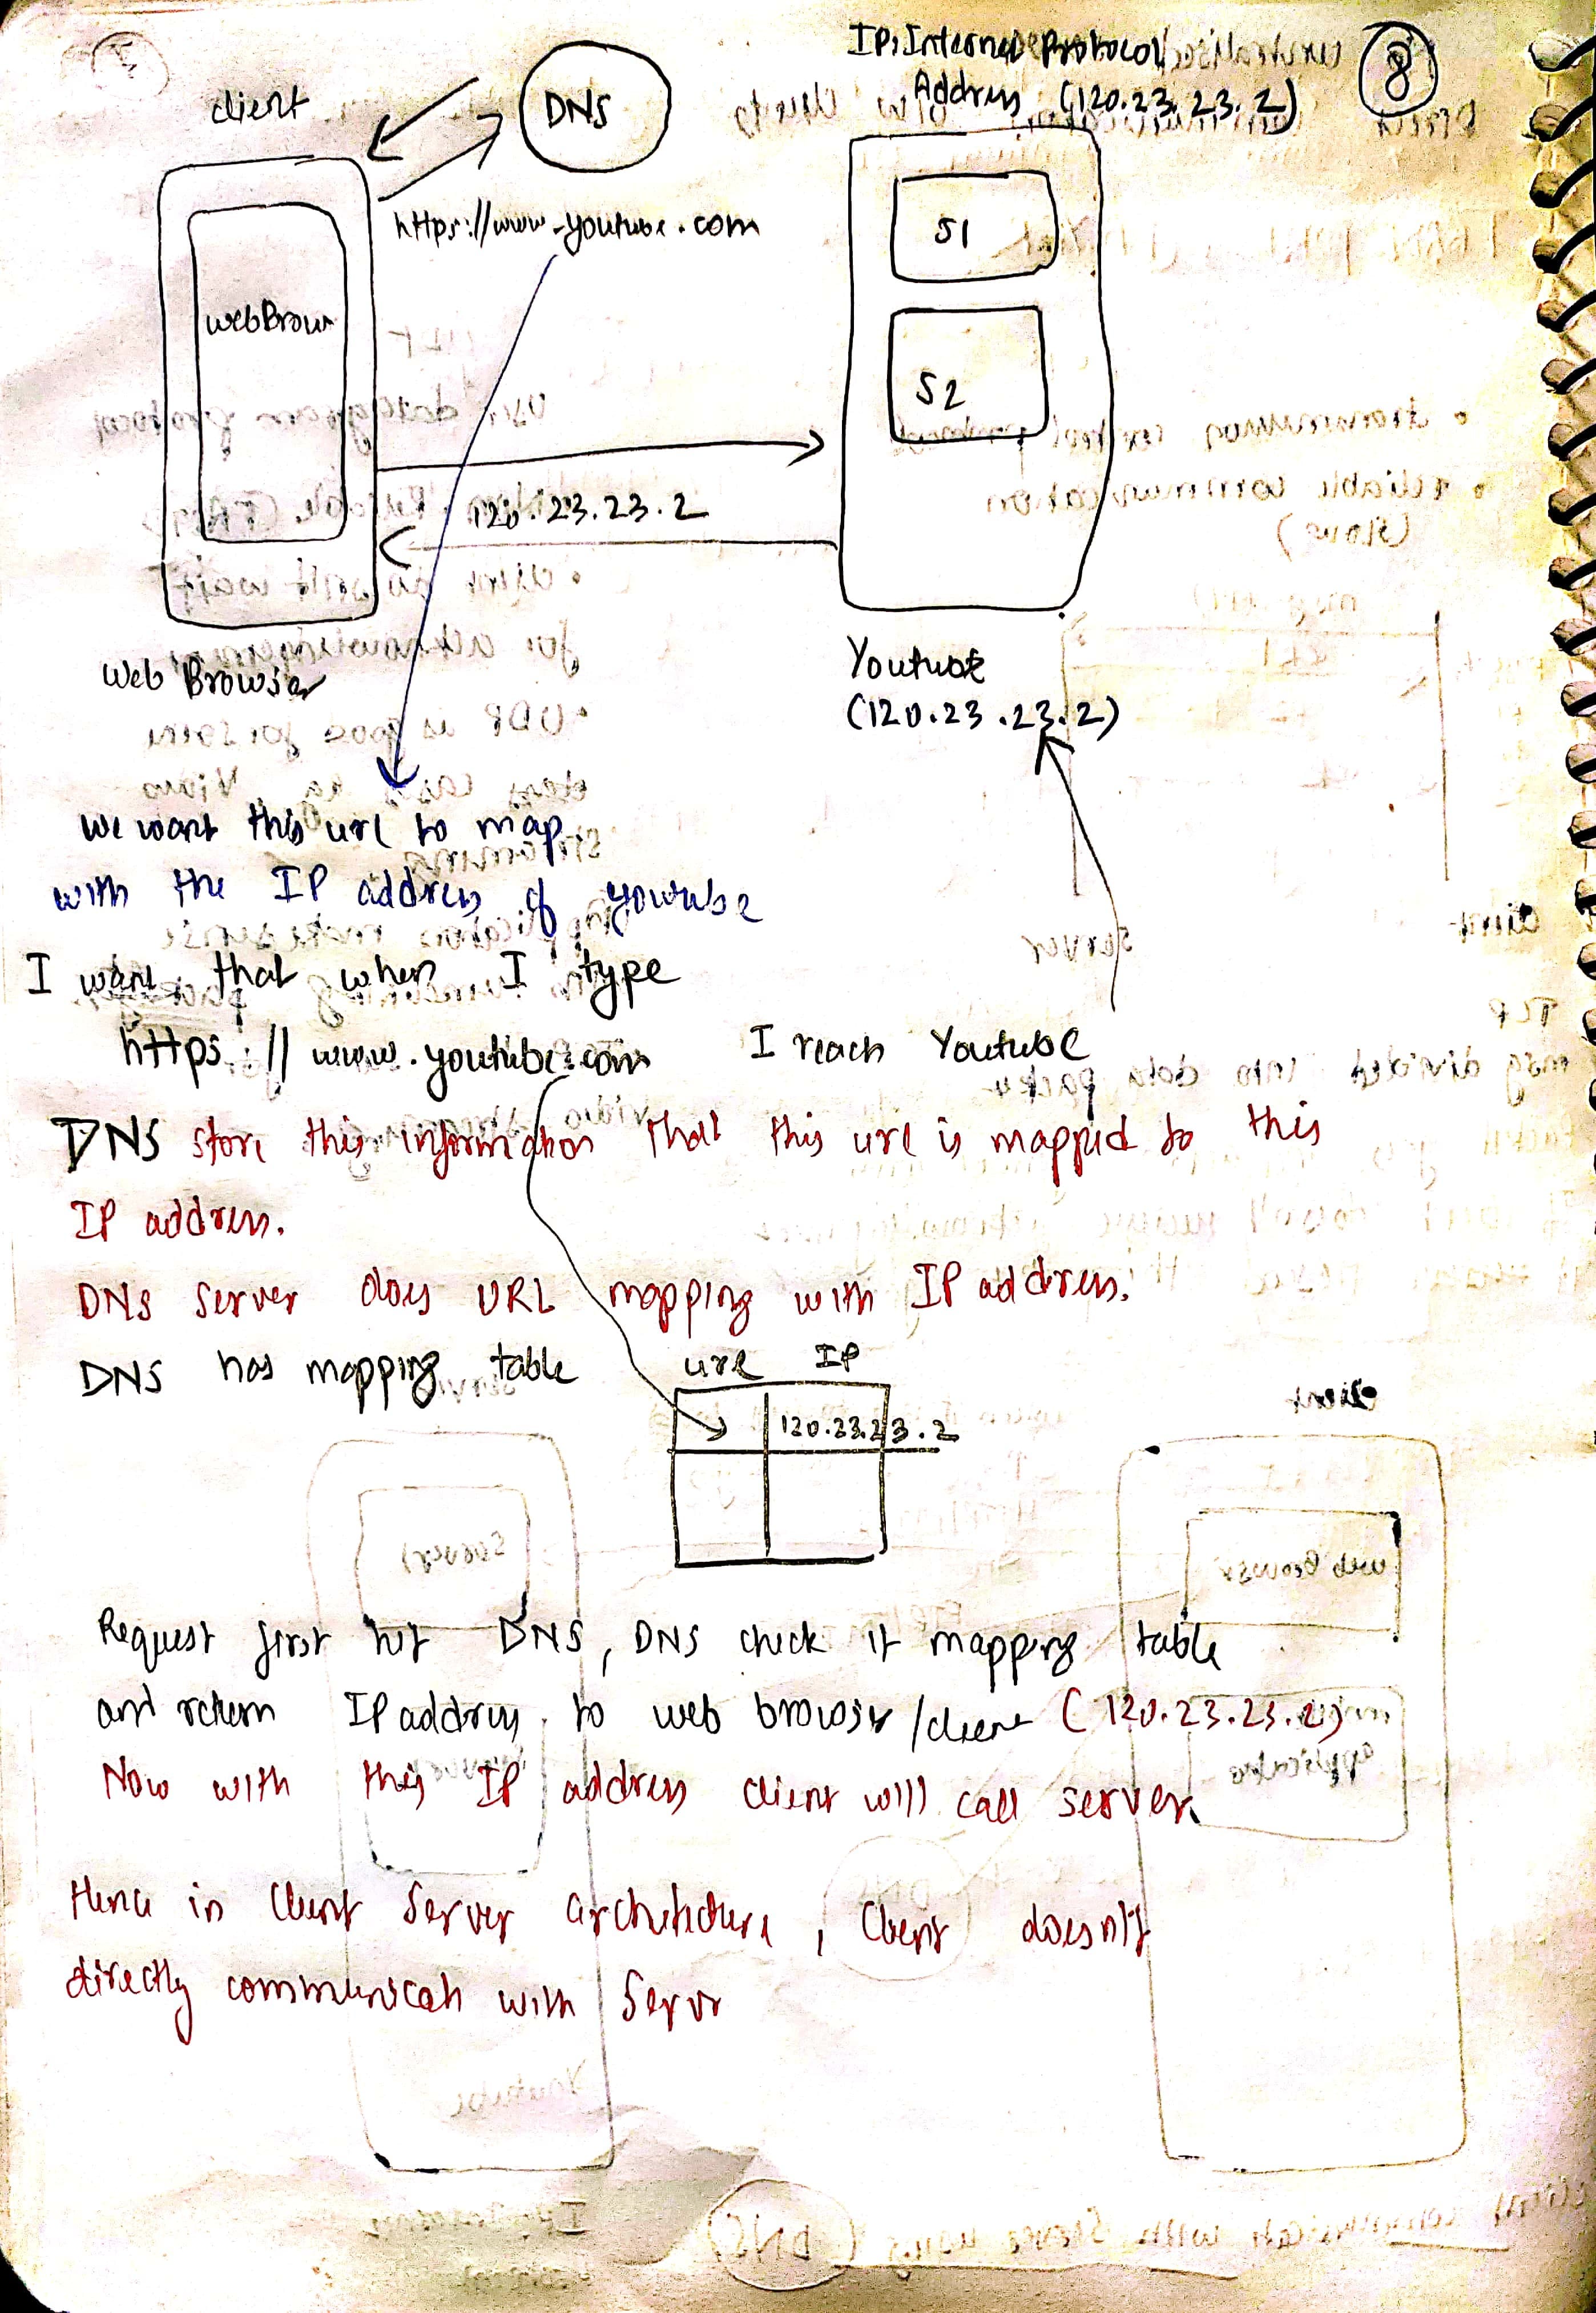 IP: Internet Protocol
Address (120.23.23.2)
8
client
DNS
https://www.youtube.com
webBrow
S1
S2
120.23.23.2
Web Browser
Youtube
(120.23.23.2)
we want this url to map
with the IP address of youtube
I want that when I type
https://www.youtube.com I reach Youtube
DNS store this information that this url is mapped to this
IP address.
DNS Server does URL mapping with IP address.
DNS has mapping table
url IP
120.23.23.2
Request first hit DNS, DNS check it mapping table
and return IP address to web browser/client (120.23.23.2)
Now with this IP address client will call server.
Hence in Client Server architecture, Client doesn't
directly communicate with Server